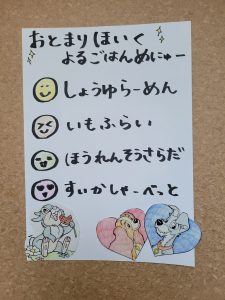 おとまりほいく
よるごはんめにゅー
しょうゆらーめん
いもふらい
ほうれんそうさらだ
すいかしゃーべっと